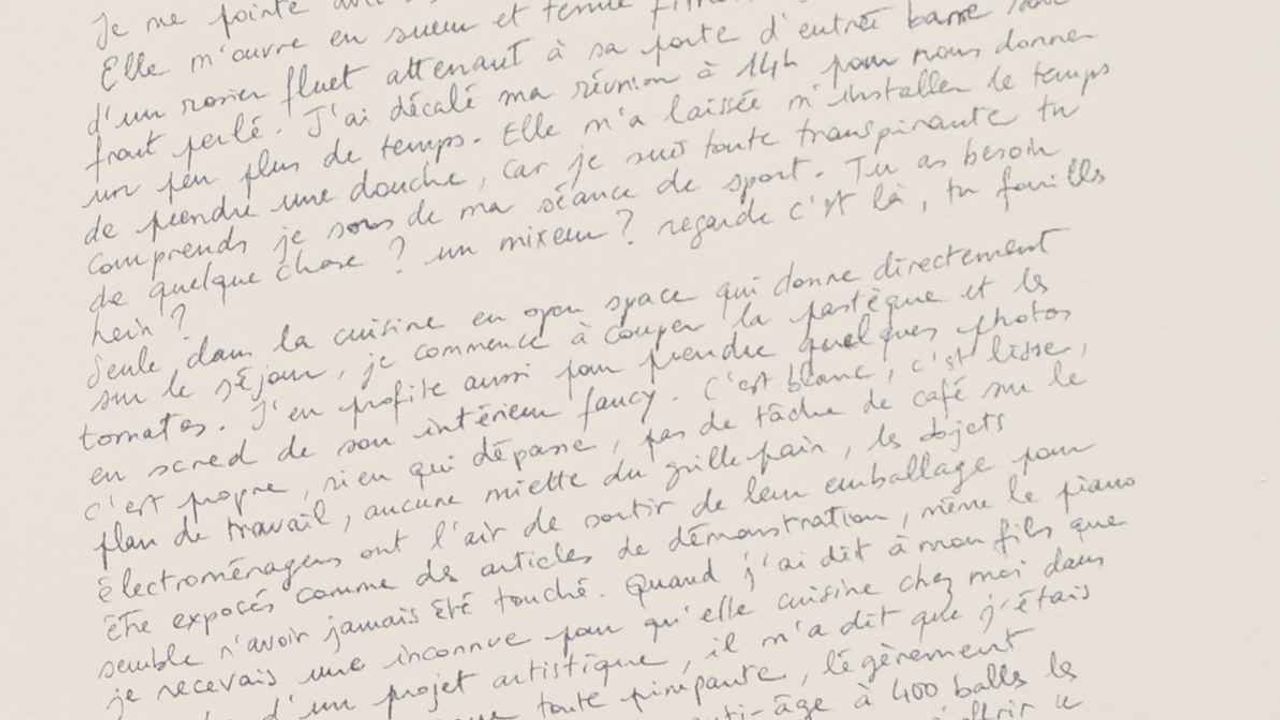 Je me pointe
Elle m'ouvre en sueur et tenue
d'un rosier fluet attenant à sa porte d'entrée barre
front perlé. J'ai décalé ma réunion à 14h pour nous donner
un peu plus de temps. Elle m'a laissée m'installer le temps
de prendre une douche, car je suis toute transpirante tu
comprends je sors de ma séance de sport. Tu as besoin
de quelque chose ? un mixeur ? regarde c'est là, tu fouilles
hein ?
Seule dans la cuisine en open space qui donne directement
sur le séjour, je commence à couper la pastèque et les
tomates. J'en profite aussi pour prendre quelques photos
en scred de son intérieur fancy. C'est blanc, c'est lisse,
c'est propre, rien qui dépasse, pas de tâche de café sur le
plan de travail, aucune miette du grille pain, les objets
électroménagers ont l'air de sortir de leur emballage pour
être exposés comme des articles de démonstration, même le piano
semble n'avoir jamais été touché. Quand j'ai dit à mon fils que
je recevais une inconnue pour qu'elle cuisine chez moi dans
d'un projet artistique, il m'a dit que j'étais
toute pimpante, légèrement
anti-âge à 400 balles les